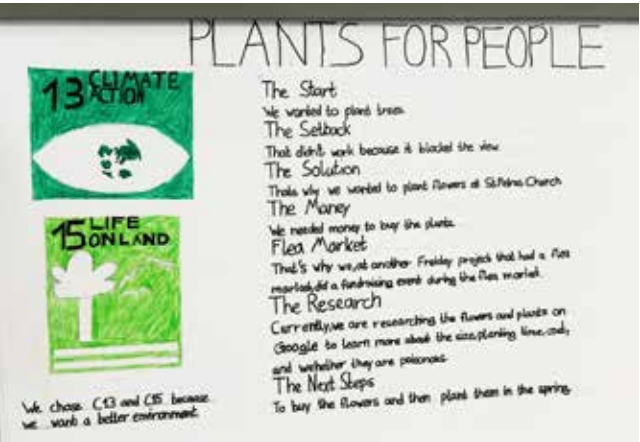 PLANTS FOR PEOPLE
13 CLIMATE
ACTION
15 LIFE
ON LAND
We chose C13 and C15 because
we want a better environment.
The Start
We wanted to plant trees.
The Setback
That didn't work because it blocked the view
The Solution
Thats why we wanted to plant flowers at St.Petrus Church
The Money
We needed money to buy the plants.
Flea Market
That's why we, at another Freiday project that had a flea
market, did a fundraising event during the flea market.
The Research
Currently, we are researching the flowers and plants on
Google to learn more about the size, planting time, cost,
and whether they are poisonous.
The Next Steps
To buy the flowers and then plant them in the spring.